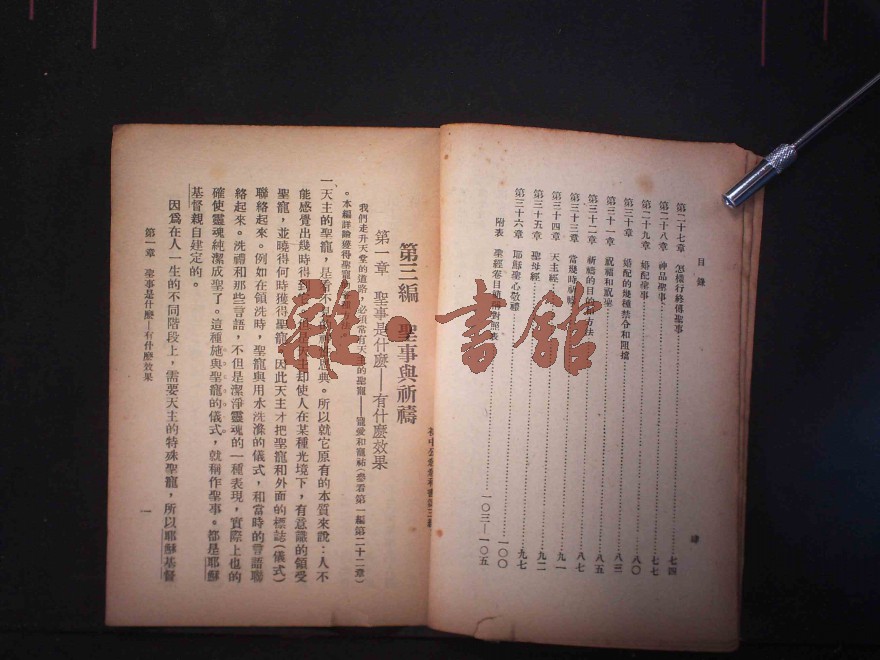 目錄
第二十七章 怎樣行終傅聖事 七四
第二十八章 神品聖事 七七
第二十九章 婚配聖事 八〇
第三十章 婚配的幾種禁令和阻擋 八三
第三十一章 祝福和祝聖 八五
第三十二章 祈禱的目的和方法 八七
第三十三章 當幾時祈禱 九一
第三十四章 天主經 九二
第三十五章 聖母經 九七
第三十六章 耶穌聖心敬禮 一〇〇
附表 聖經卷目 對照表 一〇二—一〇五
肆
雜·書館
第三編 聖事與祈禱
第一章 聖事是什麼—有什麼效果
我們走升天堂的道路,必須常有天主的聖寵——寵愛和寵祐(參看第一編第二十二章)
。本編詳論獲得聖寵
一天主的聖寵,是看不 恩典。所以就它原有的本質來說:人不
能感覺出幾時得到 天主却使人在某種光境下,有意識的領受
聖寵,並曉得何時獲得聖寵。因此天主才把聖寵和外面的標誌(儀式)
聯絡起來。例如在領洗時,聖寵與用水洗滌的儀式,和當時的言語聯
絡起來。洗禮和那些言語,不但是潔淨靈魂的一種表現,實際上也的
確使靈魂純潔成聖了。這種施與聖寵的儀式,就稱作聖事。都是耶穌
基督親自建定的。
因爲在人一生的不同階段上,需要天主的特殊聖寵,所以耶穌基督
第一章 聖事是什麼—有什麼效果
一